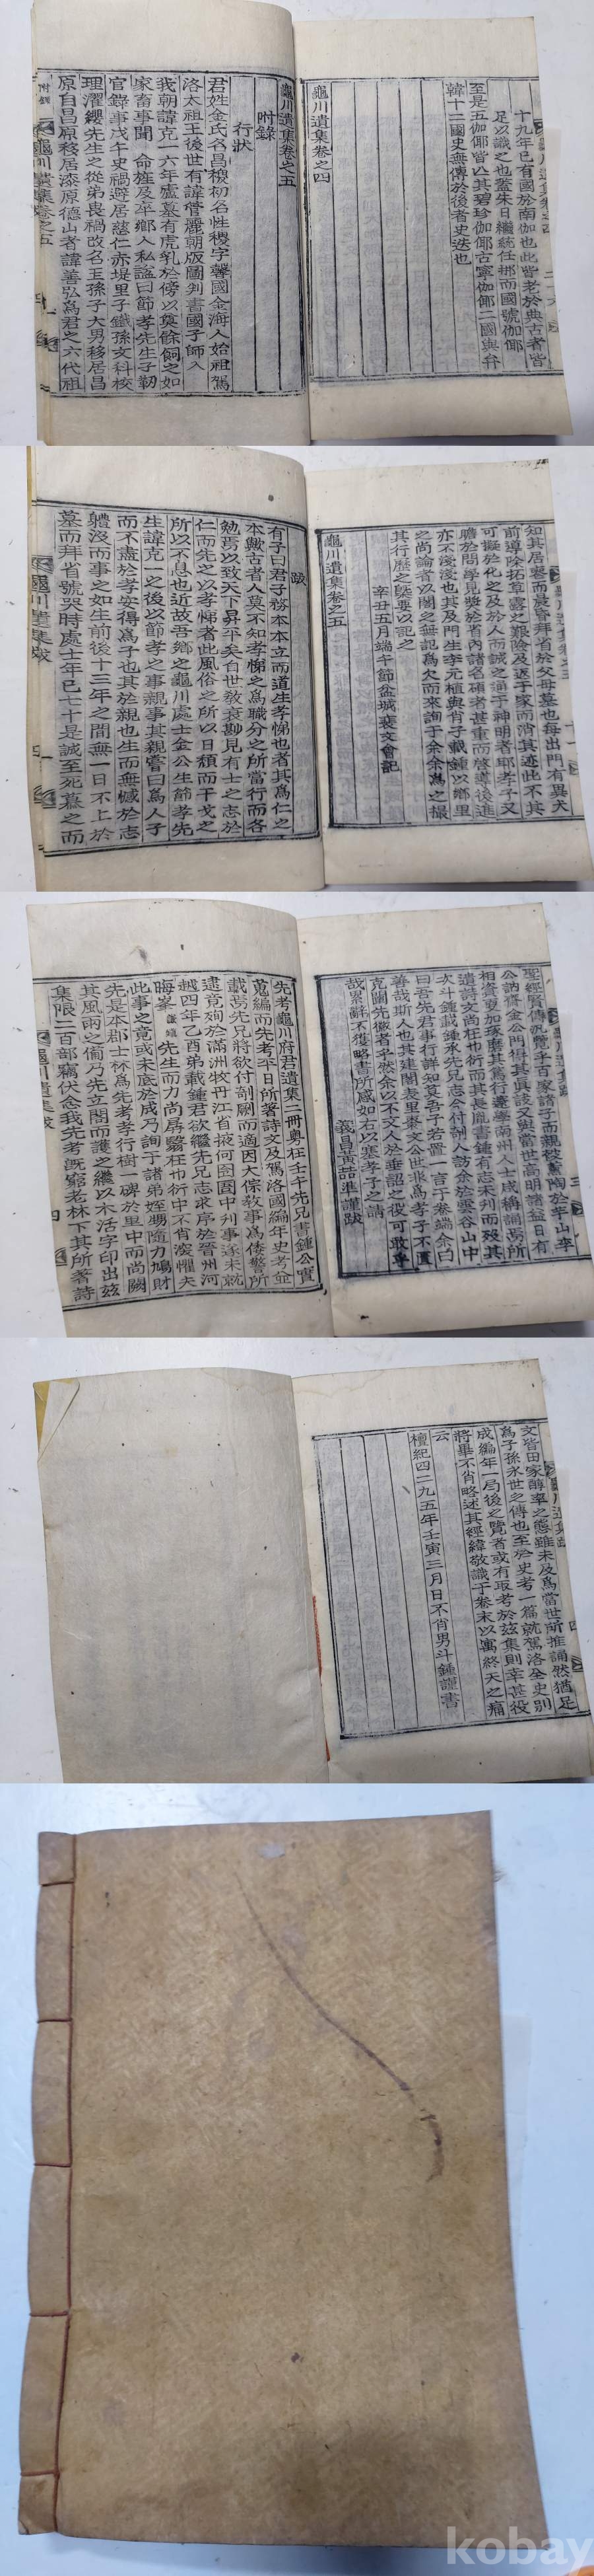 龜川遺集卷之四
二十六
十九年已有國於南伽也此皆老於典古者皆
足以識之也蓋朱日繼統任那而國號伽倻
至是五伽倻皆亾其碧珍伽倻古寧伽倻二國與弁
韓十二國史無傳於後者史迭也
龜川遺集卷之四
龜川遺集卷之五
附錄
行狀
君姓金氏名昌稷初名性稷字馨國金海人始祖駕
洛太祖王後世有諱管麗朝版圖判書國子師入
我朝諱克一六年廬墓有虎乳於傍以奠餘飼之如
家畜事聞 命旌及卒鄉人私諡曰節孝先生子勤
官錄事戊午史禍避居蔭仁赤堤里子鐵孫文科校
理濯纓先生之從弟畏禍改名王孫子大男移居昌
原自昌原移居漆原德山者諱善弘爲君之六代祖
附錄
龜川遺集卷之五
一
知其居褻而晨昏拜省於父母墓也每出門有異犬
前導除拓草露之艱險及送于家而消其迹此不其
可擬於化之及於人而誠之通于神明者耶孝子又
贍於問學見獎於省內諸名碩者甚重而啓導後進
亦不淺淺也其及門生李元植與肖子載鍾以鄉里
之尚論者以闇之無記爲欠而來詢于余余爲之撮
其行歷之槩要以記之
辛丑五月端午節盆城裵文會記
龜川遺集卷之五
十一
跋
有子曰君子務本本立而道生孝悌也者其爲仁之
本歟古者人莫不知孝悌之爲職分之所當行而各
勉焉以致天下昇平矣自世敎衰尠見有士之志於
仁而先之以孝悌者此風俗之所以日頹而干戈之
所以不息也近故吾鄉之龜川處士金公生節孝先
生諱克一之後以節孝之事親事其親嘗曰爲人子
而不盡於孝安得爲子也其於親也生而無憾於志
軆沒而事之如生前後十三年之間無一日不上於
墓而拜省號哭時處士年已七十是誠至死慕之而
龜川遺集跋
一
聖經賢傳汎覽乎百家諸子而親役薰陶於芋山李
公訥齋金公門得其眞諦又與當世高明諸益日有
相資更加琢磨其篤行邃學南州人士咸稱誦焉所
遺詩文尚在巾衍而其長胤書鍾有志未刋而歿其
次斗鍾載鍾承先兄志公付剞人訪余於雲谷山中
曰吾先君事行詳知莫吾子若置一言于卷端余曰
善哉斯人也其建閣表里奏文公世非爲孝子不匱
克闡先徽者乎然余以不文人於垂詔之役可敢乎
哉累辭不獲略書所感如右以塞孝子之請
義昌黃喆準謹跋
三
先考龜川府君遺集二冊粤在壬午先兄書鍾公實
蒐編而先考平日所著詩文及駕洛國編年史考並
載焉先兄將欲付剞劂而適因大倧敎事爲倭警所
逮竟殉於滿洲牧丹江省掖河囹圄中刋事遂未就
越四年乙酉弟載鍾君欲繼先兄志求序於晉州河
晦峯 謙鎭 先生而力尚孱綿在巾衍中不肖淩懼夫
此事之竟或未底於成乃詢于諸弟姪甥隨力鳩財
先是本郡士林爲先考孝行樹一碑於里中而尚闕
其風雨之備乃先立閣而護之繼以木活字印出玆
集限二百部竊伏念我先考旣窮老林下其所著詩
龜川遺集跋
四
文皆田家醇率之態雖未及爲當世所推誦然猶足
爲子孫永世之傳也至於史考一篇就駕洛全史別
成編年一局後之覽者或有取考於玆集則幸甚役
將畢不肖略述其經緯敬識于卷末以寓終天之痛
云
檀紀四二九五年壬寅三月日不肖男斗鍾謹書
kobay